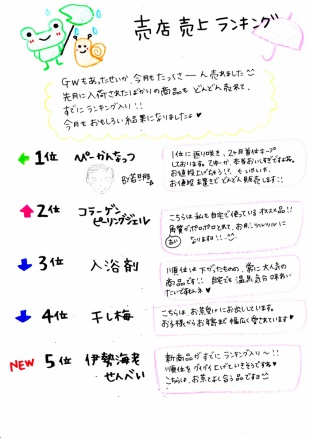 売店売上ランキング
GWもあったせいか、今月もたっくさーん売れました
先月に入荷されたばかりの商品も どんどん売れて、
すでにランクイン!!
今月もおもしろい結果になりましたよ♥
1位 ぺーかんなっつ
1位に返り咲き、2ヶ月首位キープ
しております。てゆーか、本当おいしすぎですよね。
お値段据え置きでどんどん販売します!!
2位 コラーゲン
ピーリングジェル
こちらは私も自宅で使っているオススメ品!!
角質がポロポロとれて、お肌ツルツルに
なりますヨ!!
3位 入浴剤
順位は下がったものの、常に大人気の
商品です!! 自宅でも温泉気分味わい
たいですもんネ♥
4位 干し梅
こちらは、お茶受けにお出ししています。
お子様からお年寄まで幅広く愛されています♥
NEW 5位 伊勢海老
せんべい
新商品がすでにランクイン〜!!
順位をグイグイ上げていきそうですね
こちらは、お茶とよく合う品です